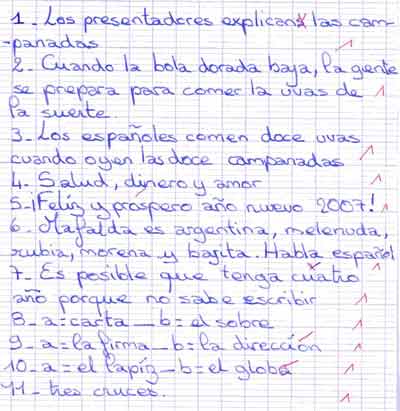 1_ Los presentadores explican las cam-
-panadas
2_ Cuando la bola dorada baja, la gente
se prepara para comer la uvas de
la suerte.
3_ Los españoles comen doce uvas
cuando oyen las doce campanadas
4_ Salud, dinero y amor
5_ ¡Feliz y prospero año nuevo 2007!
6_ Mafalda es argentina, melenuda,
rubia, morena y bajita. Habla español
7_ Es posible que tenga cuatro
año porque no sabe escribir
8_ a = carta _ b = el sobre
9_ a = la firma _ b = la dirección
10_ a = el lapiz _ b = el globo
11_ tres cruces.